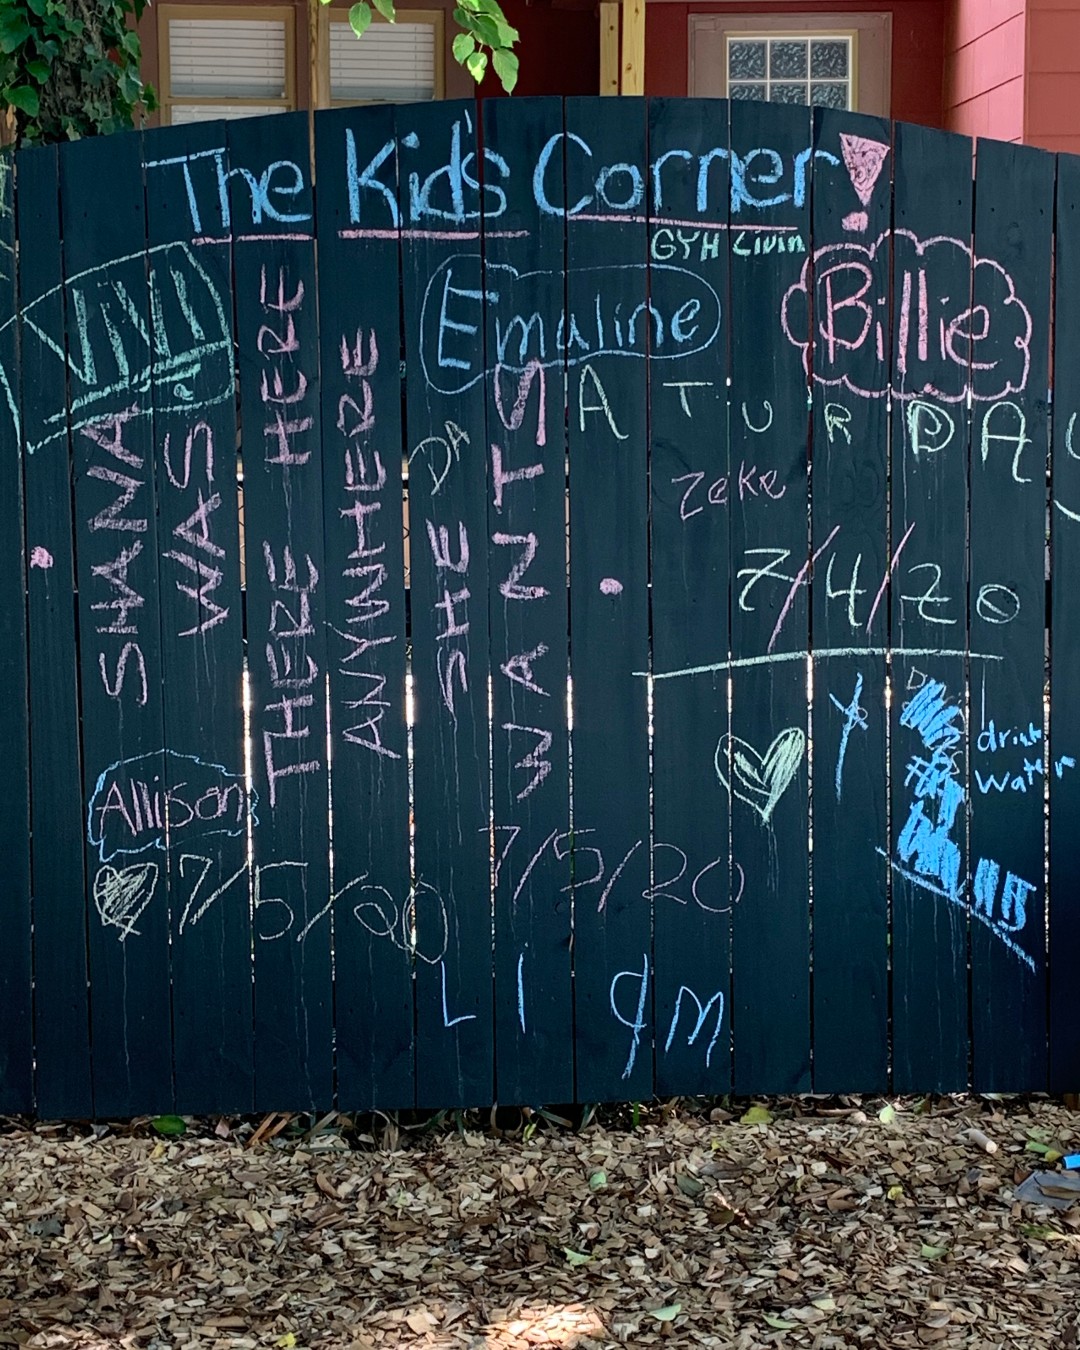 The Kid's Corner!
GYH Livin
ViVi
Emaline
Billie
SHANA
WAS
THERE HERE
ANYWHERE
SHE
WANTS
DA
SATURDAY
Zeke
7/4/20
drink
Water
Allison
7/5/20
7/5/20
LIAM